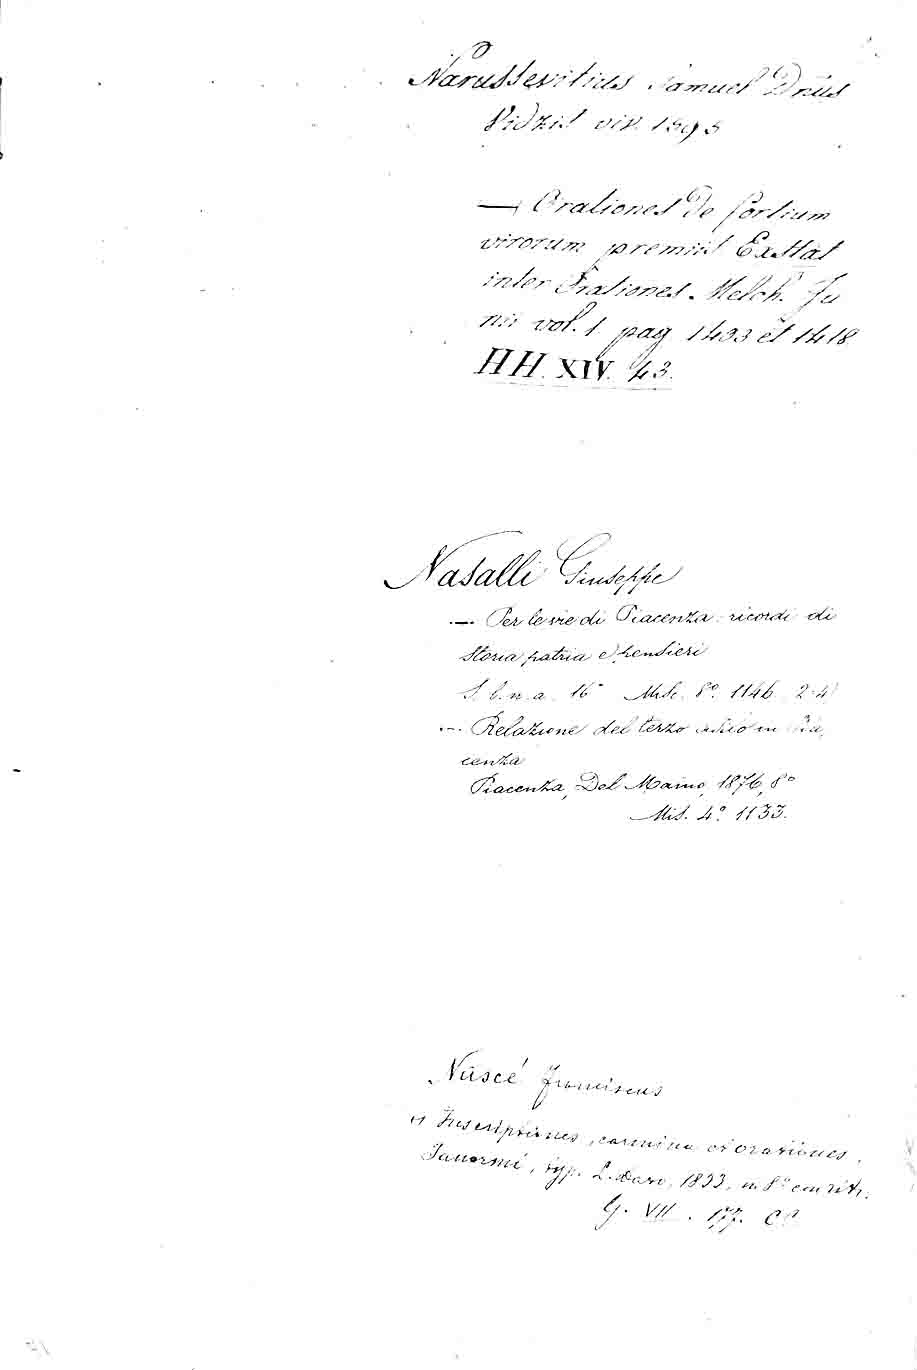 Narussevitius Samuel Dnus
Vidzis viv. 1595
— Orationes De fortium
virorum premiis Exstat
inter Orationes Melch. Ju
nii vol. 1 pag 1433 et 1418
HH. XIV. 43.
Nasalli Giuseppe
— Per le vie di Piacenza: ricordi di
storia patria e pensieri
S. l. n. a. 16° Misc. 8°. 1146 2.4
— Relazione del terzo asilo in Pia
cenza
Piacenza, Del Maino, 1876, 8°
Mis. 4°. 1133.
Nascé Franciscus
Inscriptiones, carmina et orationes.
Panormi, typ. L. Dato, 1833, in 8° con ritr.
G. VII. 177. CC